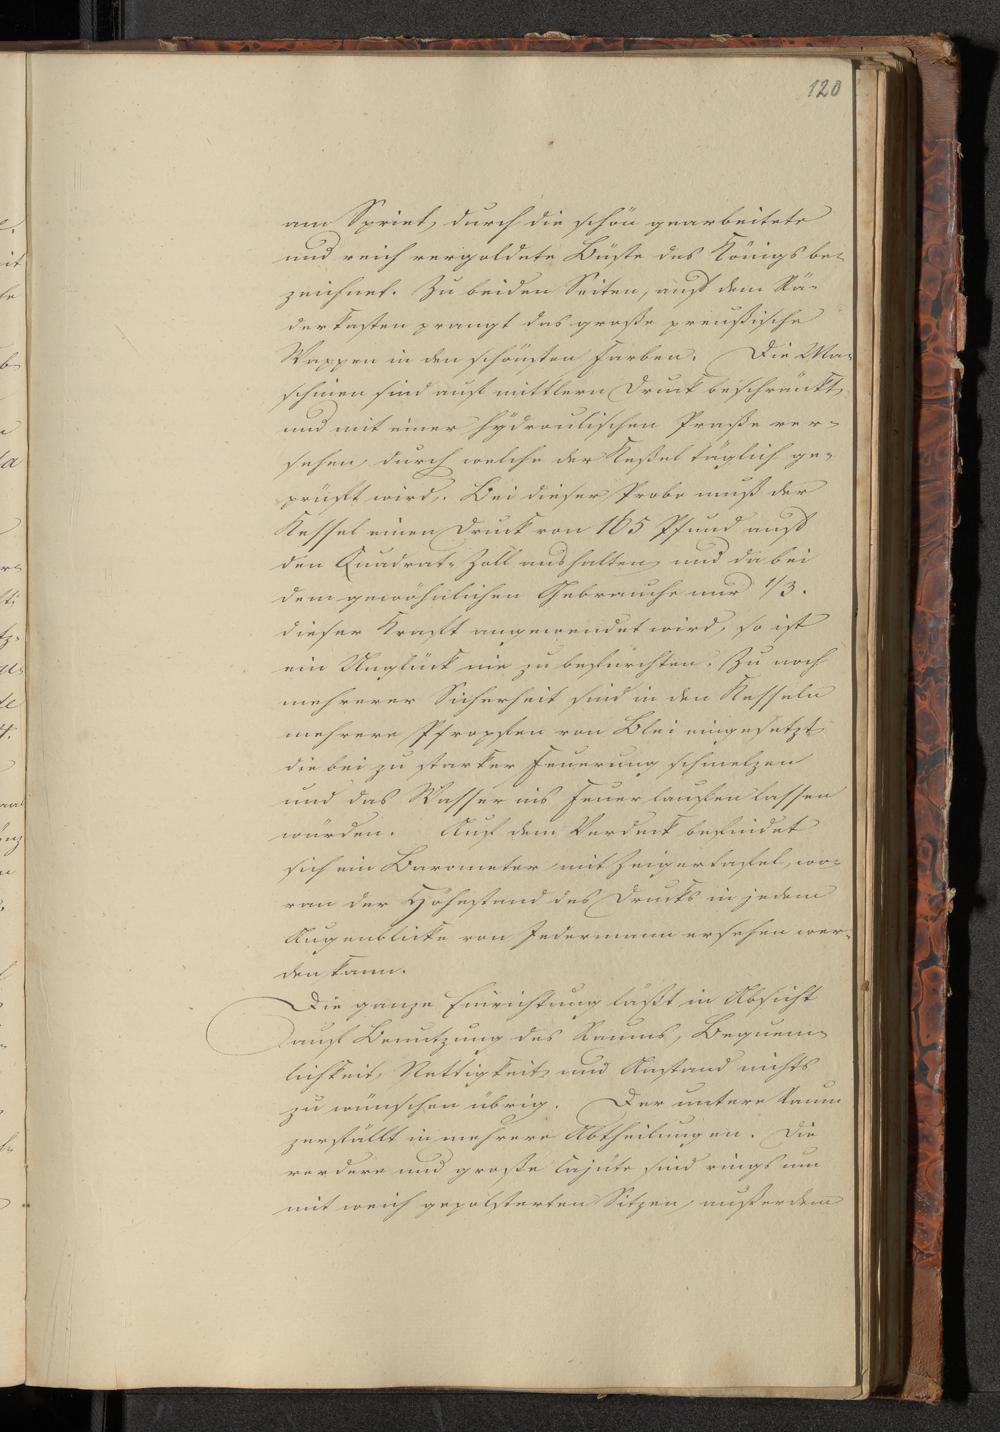 120
am Spriet, durch die schön gearbeitete
und reich vergoldete Büste des Königs be-
zeichnet. Zu beiden Seiten, auf dem Rä-
derkasten prangt das große preußische
Wappen in den schönsten Farben. Die Ma-
schinen sind auf mittlern Druck beschränkt,
und mit einer hÿdraulischen Praße ver-
sehen, durch welche der Keßel täglich ge-
prüft wird. Bei dieser Probe muß der
Kessel einen Druck von 165 Pfund auf
den Quadrat-Zoll aushalten, und da bei
dem gewöhnlichen Gebrauche nur 1/3.
dieser Kraft angewendet wird, so ist
ein Unglück nie zu befürchten. Zu noch
mehrerer Sicherheit sind in den Kesseln
mehrere Pfropfen von Blei eingesetzt,
die bei zu starker Feuerung schmelzen
und das Wasser ins Feuer laufen lassen
würden. Auf dem Verdeck befindet
sich ein Barometer mit Zeigertafel, wo-
ran der Höhestand des Drucks in jedem
Augenblicke von Jedermann ersehen wer-
den kann.
Die ganze Einrichtung läßt in Absicht
auf Benutzung des Raums, Bequem-
lichkeit, Nettigkeit und Anstand nichts
zu wünschen übrig. Der untere Raum
zerfällt in mehrere Abtheilungen. Die
vordere und große Cajüte sind rings um
mit weich gepolsterten Sitzen, außerdem